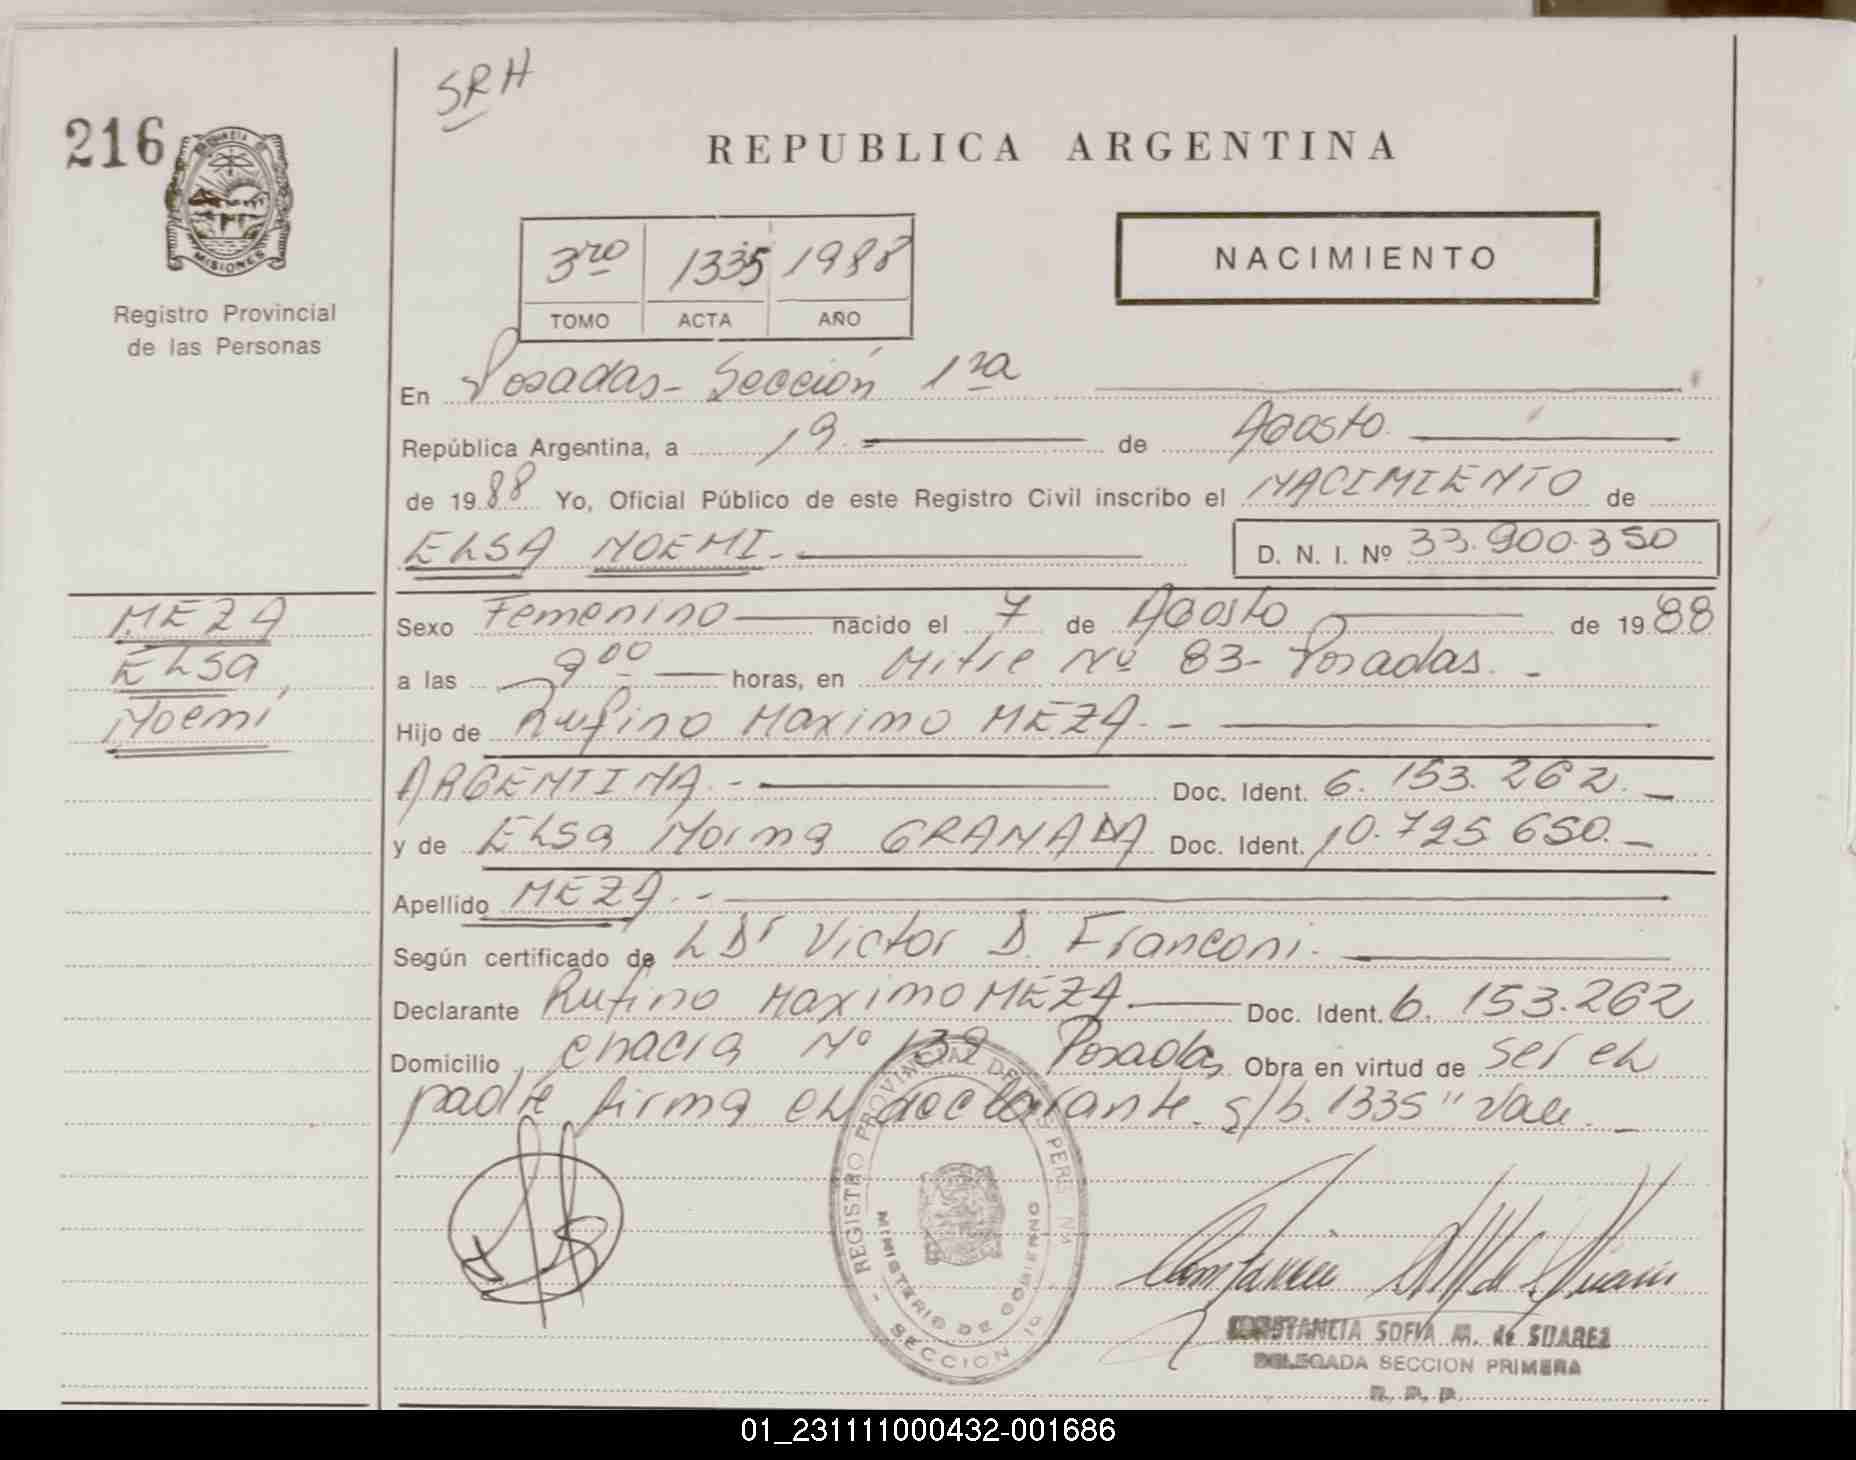 SRH
216
PROVINCIA DE
MISIONES
Registro Provincial
de las Personas
REPUBLICA ARGENTINA
3ro 1335 1988
TOMO ACTA AÑO
NACIMIENTO
En Posadas - Sección 1ra
República Argentina, a 19 de Agosto
de 1988 Yo, Oficial Público de este Registro Civil inscribo el NACIMIENTO de
ELSA NOEMI.- D. N. I. Nº 33.900.350
MEZA
ELSa,
Noemi
Sexo Femenino nacido el 7 de Agosto de 1988
a las 9 00 horas, en Mitre Nº 83- Posadas. -
Hijo de Rufino Maximo MEZA. -
ARGENTINA. - Doc. Ident. 6. 153. 262. -
y de ELSa Norma GRANADA Doc. Ident. 10.725 650. -
Apellido MEZA. -
Según certificado de L Dr Victor D. Franconi.
Declarante Rufino Maximo MEZA Doc. Ident. 6. 153.262
Domicilio, chacra Nº 139 Posadas, Obra en virtud de ser el
padre firma el declarante. s/b. 1335" Vale. -
REGISTRO PROVINCIAL DE LAS PERSONAS
MINISTERIO DE GOBIERNO
- SECCION 1a -
CONSTANCIA SOFIA M. de SUAREZ
DELEGADA SECCION PRIMERA
R. P. P.
01_231111000432-001686